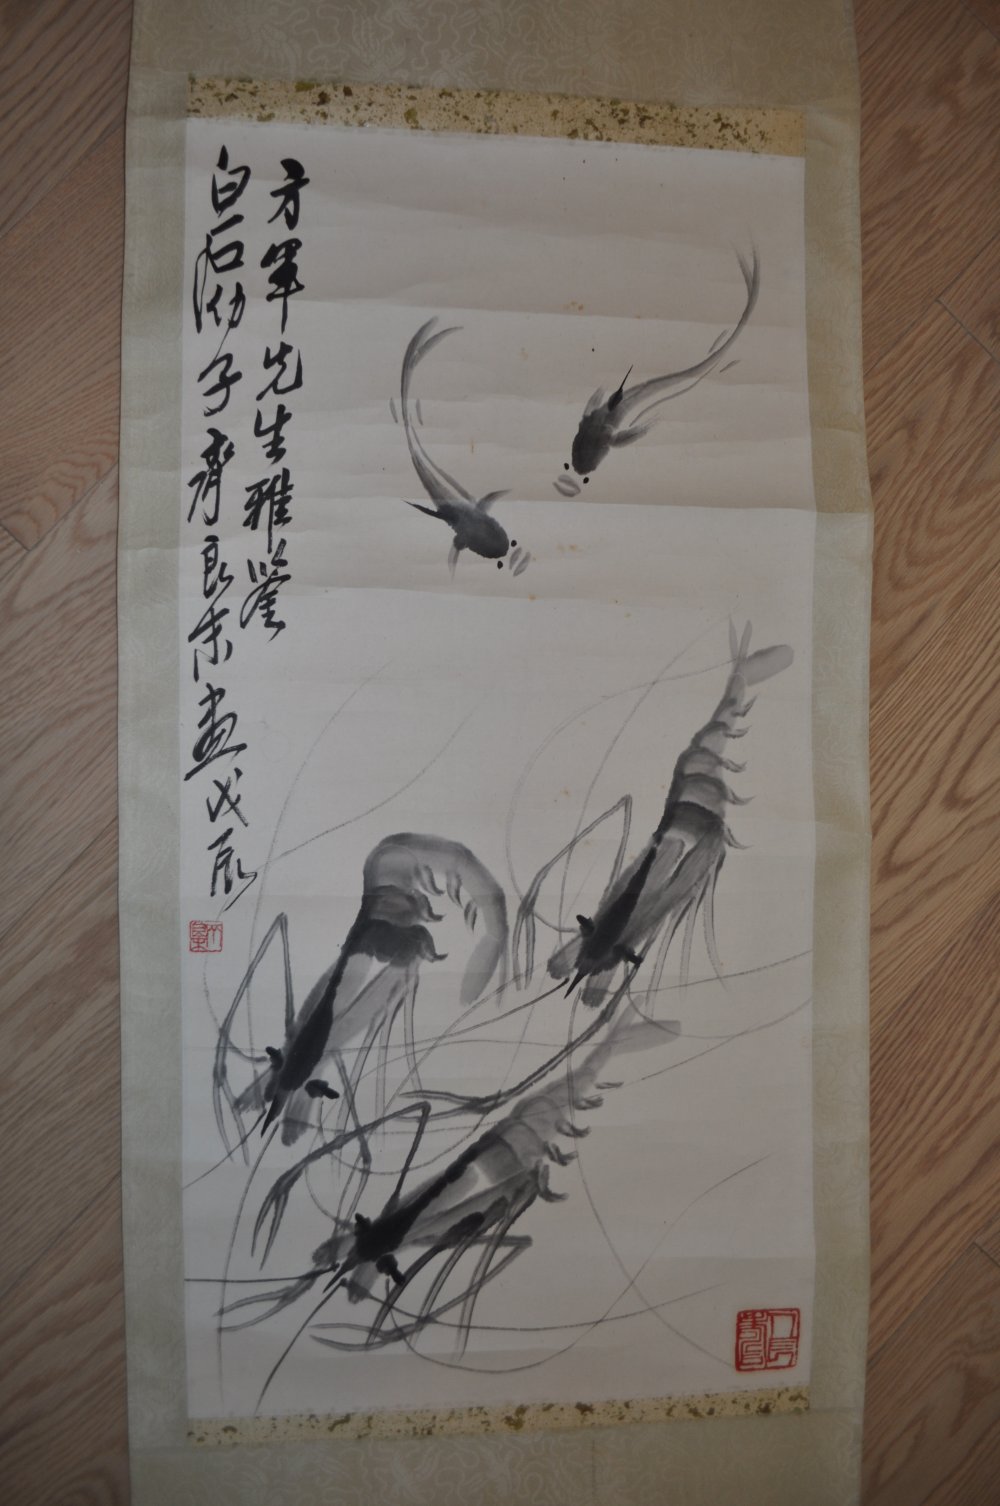 方 先生雅鉴
白石幼子齊良末畫戊辰